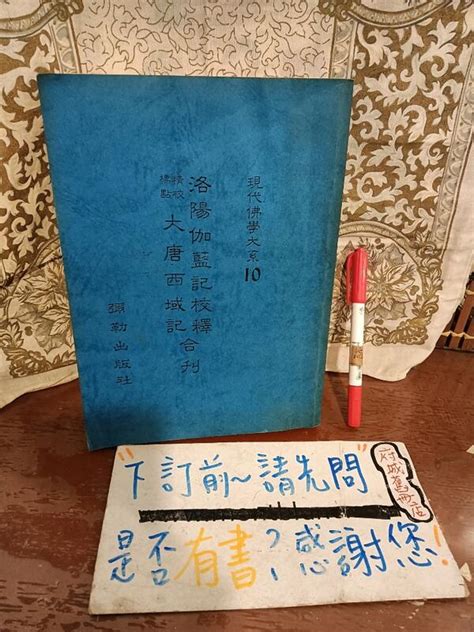 現代佛學大系10
洛陽伽藍記校釋合刊
精校
標點
大唐西域記
彌勒出版社
"下訂前~請先問"
府城舊冊店
是否有書?感謝您!